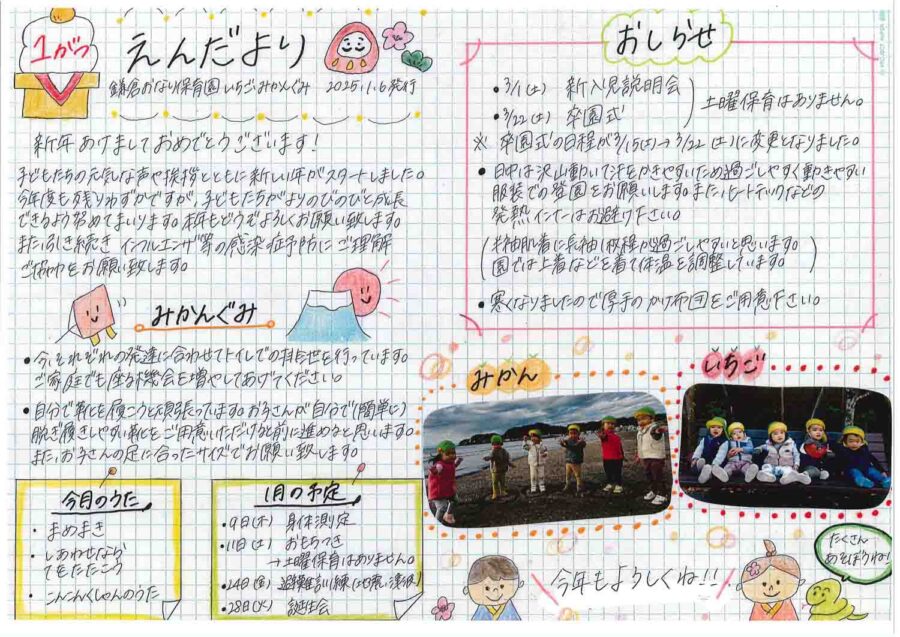 1がつ
えんだより
鎌倉おなり保育園 いちご・みかんぐみ 2025.1.6発行
新年 あけまして おめでとうございます!
子どもたちの元気な声や挨拶とともに新しい年がスタートしました。
今年度も残りわずかですが、子どもたちがよりのびのびと成長
できるよう努めてまいります。本年もどうぞよろしくお願い致します。
また引き続き インフルエンザ等の感染症予防に ご理解
ご協力をお願い致します。
みかんぐみ
・今、それぞれの発達に合わせてトイレでの排泄を行っています。
ご家庭でも座る機会を増やしてあげてください。
・自分で靴を履こうと頑張っています。お子さんが自分で(簡単に)
脱ぎ履きしやすい靴をご用意いただけると前に進めると思います。
また、お子さんの足に合ったサイズでお願い致します。
今月のうた
・まめまき
・しあわせなら
てをたたこう
・こんこんくしゃんのうた
1月の予定
・9日(木) 身体測定
・11日(土) おもちつき
→土曜保育はありません。
・24日(金) 避難訓練
・28日(火) 誕生会
おしらせ
・3/1(土) 新入児説明会
・3/22(土) 卒園式
土曜保育はありません。
※ 卒園式の日程が3/15(土)→3/22(土)に変更となりました。
・日中は沢山動いて汗をかきやすいため過ごしやすく動きやすい
服装での登園をお願いします。また、ヒートテックなどの
発熱インナーはお避け下さい。
(半袖肌着に長袖1枚程が過ごしやすいと思います。
園では上着などを着て体温を調整しています。)
・寒くなりましたので厚手のかけ布団をご用意下さい。
みかん
いちご
今年もよろしくね!!
たくさん
あそぼうね!